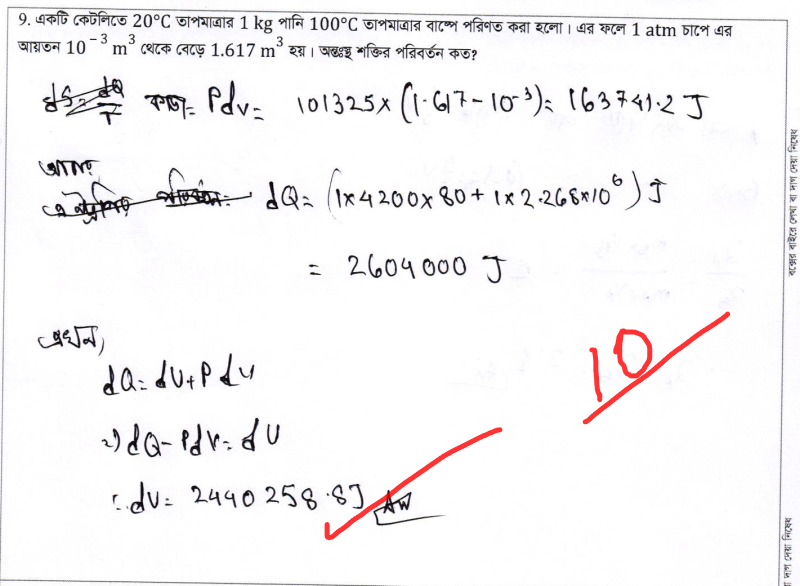 9. একটি কেটলিতে 20°C তাপমাত্রার 1 kg পানি 100°C তাপমাত্রার বাষ্পে পরিণত করা হলো। এর ফলে 1 atm চাপে এর
আয়তন 10⁻³ m³ থেকে বেড়ে 1.617 m³ হয়। অন্তঃস্থ শক্তির পরিবর্তন কত?
dS = dQ/T কাজ = Pdv = 101325×(1.617-10⁻³) = 163741.2 J
আবার,
dQ = (1×4200×80 + 1×2.268×10⁶) J
= 2604000 J
এখন,
dQ = dU + P dV
⇒ dQ - PdV = dU
10
∴ dU = 2440258.8J Ans
বক্সের বাইরে লেখা বা দাগ দেয়া নিষেধ
া দাগ দেয়া নিষেধ